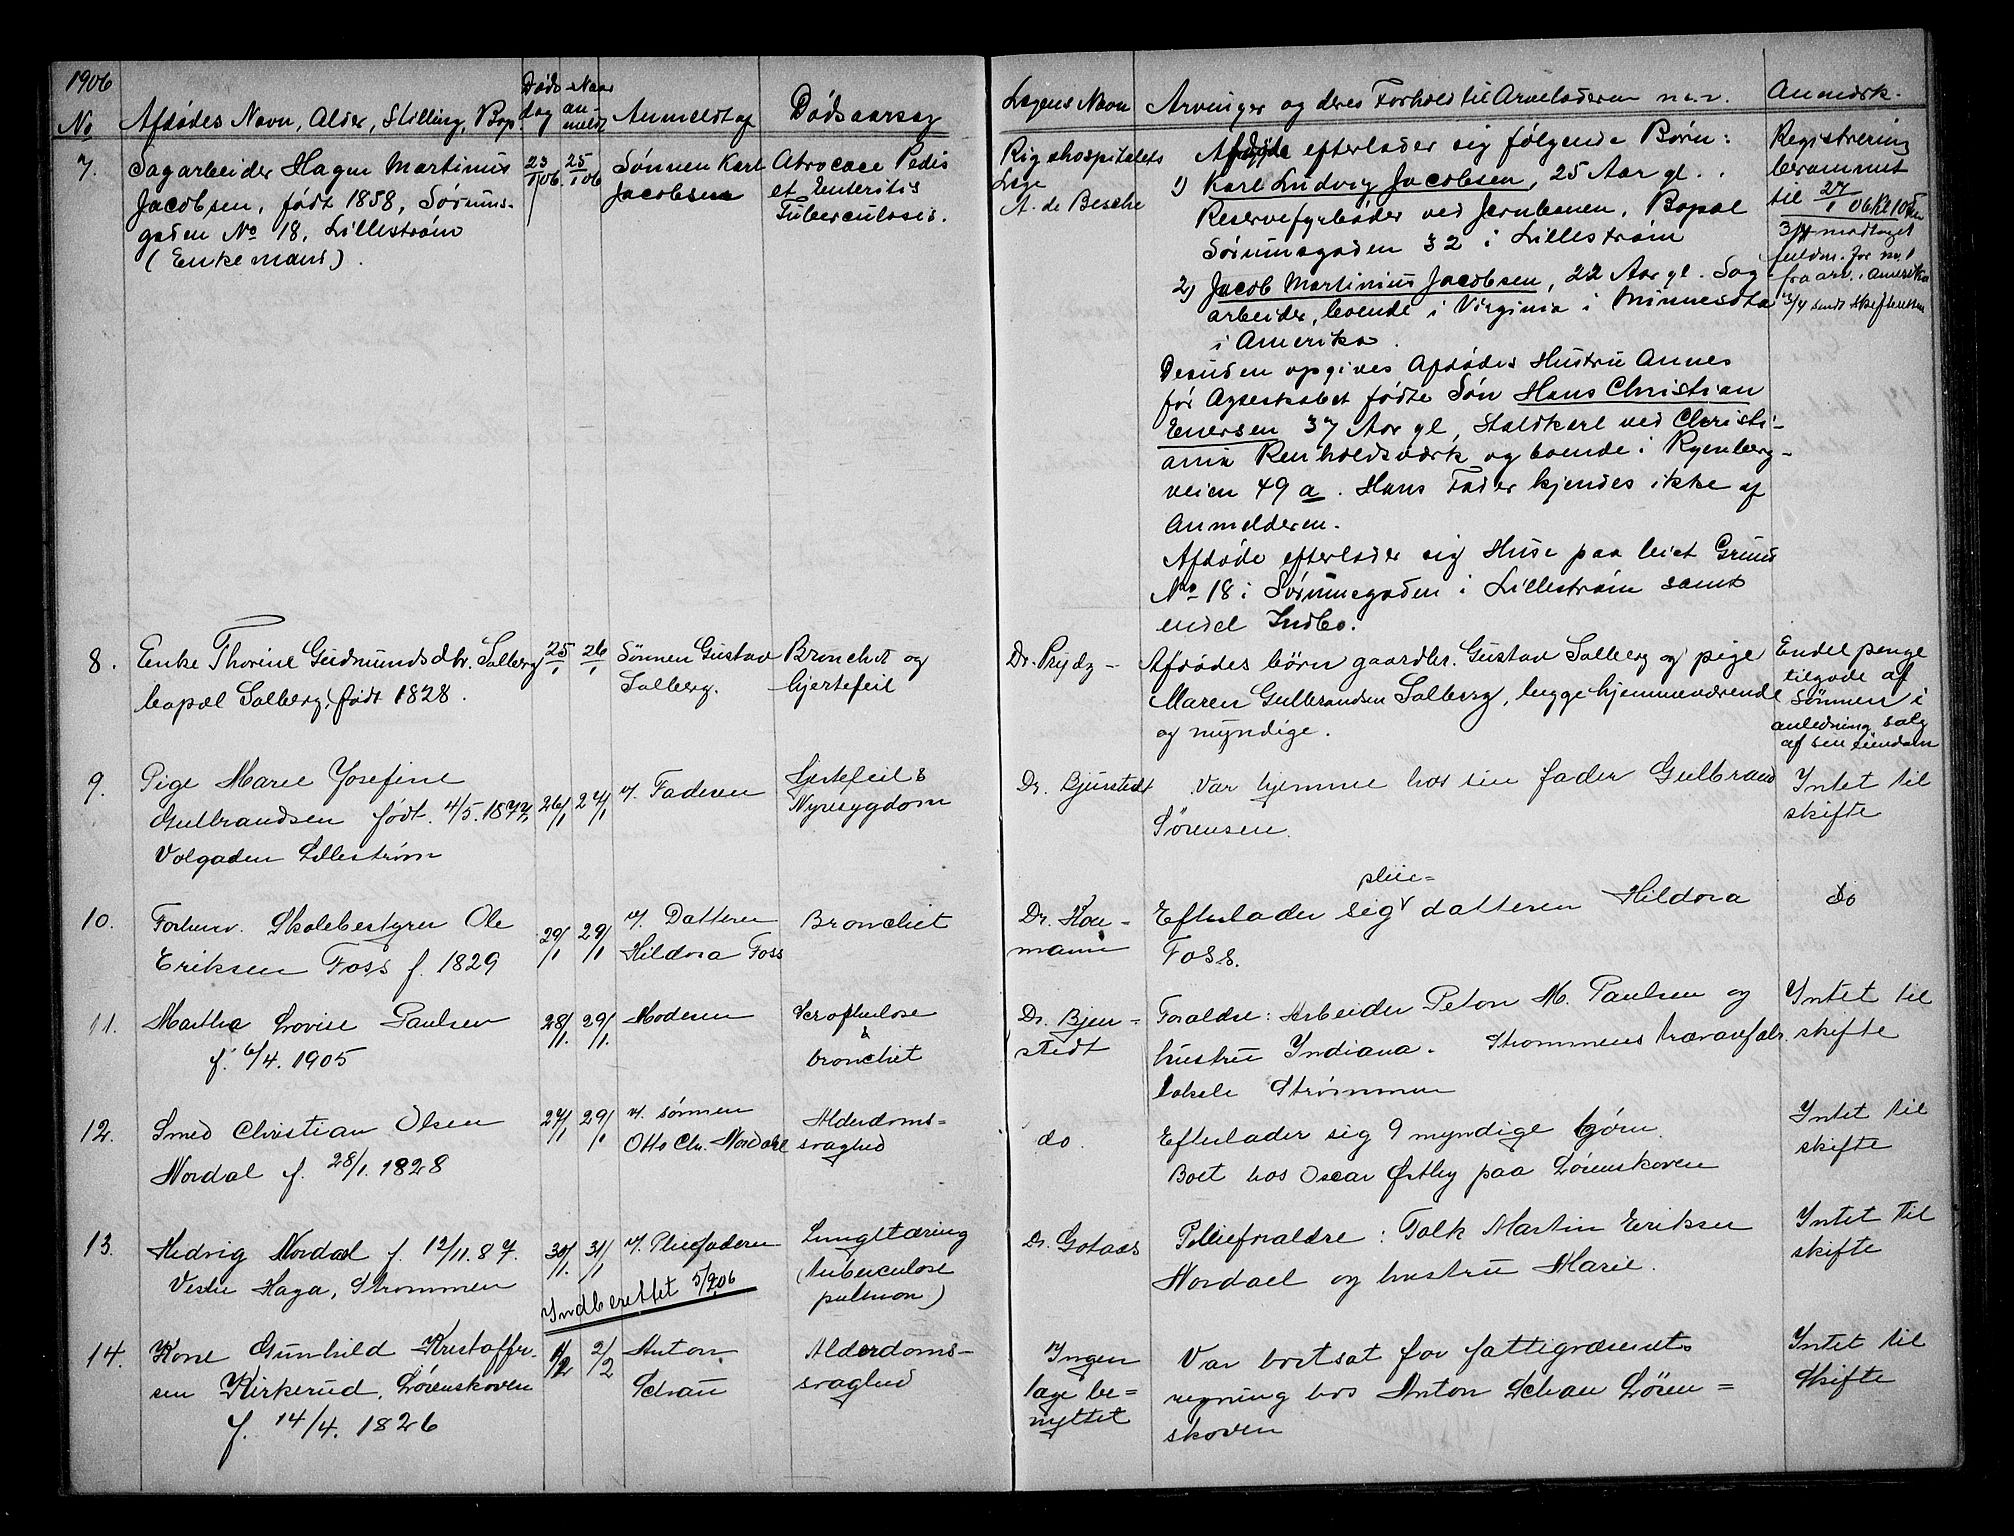 1906
No Afdødes Navn, Alder, Stilling, Bop. Døds dag Naar anmeldt Anmeldt af Dødsaarsag Lægens Navn Arvinger og deres Forhold til Arveladeren m.v. Anmærk.
7. Sagarbeider Hagen Martinius
Jacobsen, født 1858, Sørums-
gaden No 18, Lillestrøm
(Enkemand).
23/1 06 25/1 06
Sønnen Karl
Jacobsen
Pedis
et Enteritis
Tuberculosis.
Rigshospitalets
Læge
A. de Besche
Afdøde efterlader sig følgende Børn:
1) Karl Ludvig Jacobsen, 25 Aar gl.
Reservefyrbøder ved Jernbanen, Bopæl
Sørumsgaden 32 i Lillestrøm
2) Jacob Martinius Jacobsen, 22 Aar gl. Sag-
arbeider, boende i Virginia i Minnesota
i Amerika.
Desuden opgives Afdødes Hustru Annes
før Ægteskabet fødte Søn Hans Christian
Enersen 37 Aar gl, Staldkarl ved Christi-
ania Renholdsværk og boende i Ryenberg-
veien 49 a. Hans Fader kjendes ikke af
Anmelderen.
Afdøde efterlader sig Huse paa leiet Grund
No 18 i Sørumsgaden i Lillestrøm samt
endel Indbo.
Registrering
berammet
til 27/1 06 Kl 10
3/4 modtaget
fuldm. for no. 1
fra arv. i Amerika
3/4 sendt Skifteretten
8. Enke Thorine Gudmundsdtr. Salberg
bopæl Salberg, født 1828.
25/1 26/1
Sønnen Gustav
Salberg.
Bronchit og
hjertefeil
Dr. Rydz -
Afdødes børn gaardbr. Gustav Salberg og pige
Maren Gulbrandsen Salberg, begge hjemmeværende
og myndige.
Endel penge
tilgode af
Sønnen i
anledning salg
af sin eiendom
9. Pige Marie Josefine
Gulbrandsen født. 4/5. 1877,
Volgaden Lillestrøm
26/1 27/1
v. Faderen
Hjertefeil &
Nyresygdom
Dr. Bjørstedt
Var hjemme hos sin fader Gulbrand
Sørensen.
Intet til
skifte
10. Forhenv. Skolebestyrer Ole
Eriksen Foss f. 1829
29/1 29/1
v. Datteren
Hildora Foss
Bronchit
Dr. Hou-
mann
pleie=
Efterlader sig datteren Hildora
Foss.
do
11. Martha Lovise Paulsen
f. 6/4. 1905
28/1. 29/1.
Moderen
Scrophulose
&
bronchit
Dr. Bjer-
stedt
Foraldre: Arbeider Peton M. Paulsen og
hustru Indiana. Strømmens trævarefabr.
lokale Strømmen
Intet til
skifte
12. Smed Christian Olsen
Nordal f. 28/1. 1828
27/1 29/1
v. sønnen
Otto Chr. Nordahl
Alderdoms=
svaghed
do
Efterlader sig 9 myndige børn.
Boet hos Oscar Østby paa Lørenskoven
Intet til
skifte
13. Hedvig Nordal f. 12/11. 87.
Vestre Haga, Strømmen
30/1. 31/1
v. Pleiefaderen
Indberettet 5/2 06
Lungetæring
(tuberculose
pulmon)
Dr. Gotaas
Pleieforaldre: Folk Martin Eriksen
Nordael og hustru Marie.
Intet til
skifte
14. Kone Gunhild Kristoffer-
sen Kirkerud, Lørenskoven
f. 14/4. 1826
1/2 2/2
Anton
Schau
Alderdoms-
svaghed
Ingen
læge be=
nyttet
Var bortsat for fattigvæsenets
regning hos Anton Schau Løren=
skoven
Intet til
Skifte